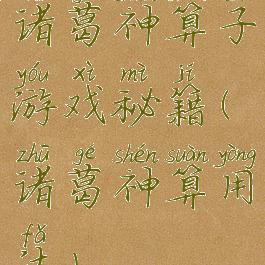 诸葛神算子
yóu xì mì jí
游戏秘籍(
zhū gě shén suàn yòng
诸葛神算用
fǎ